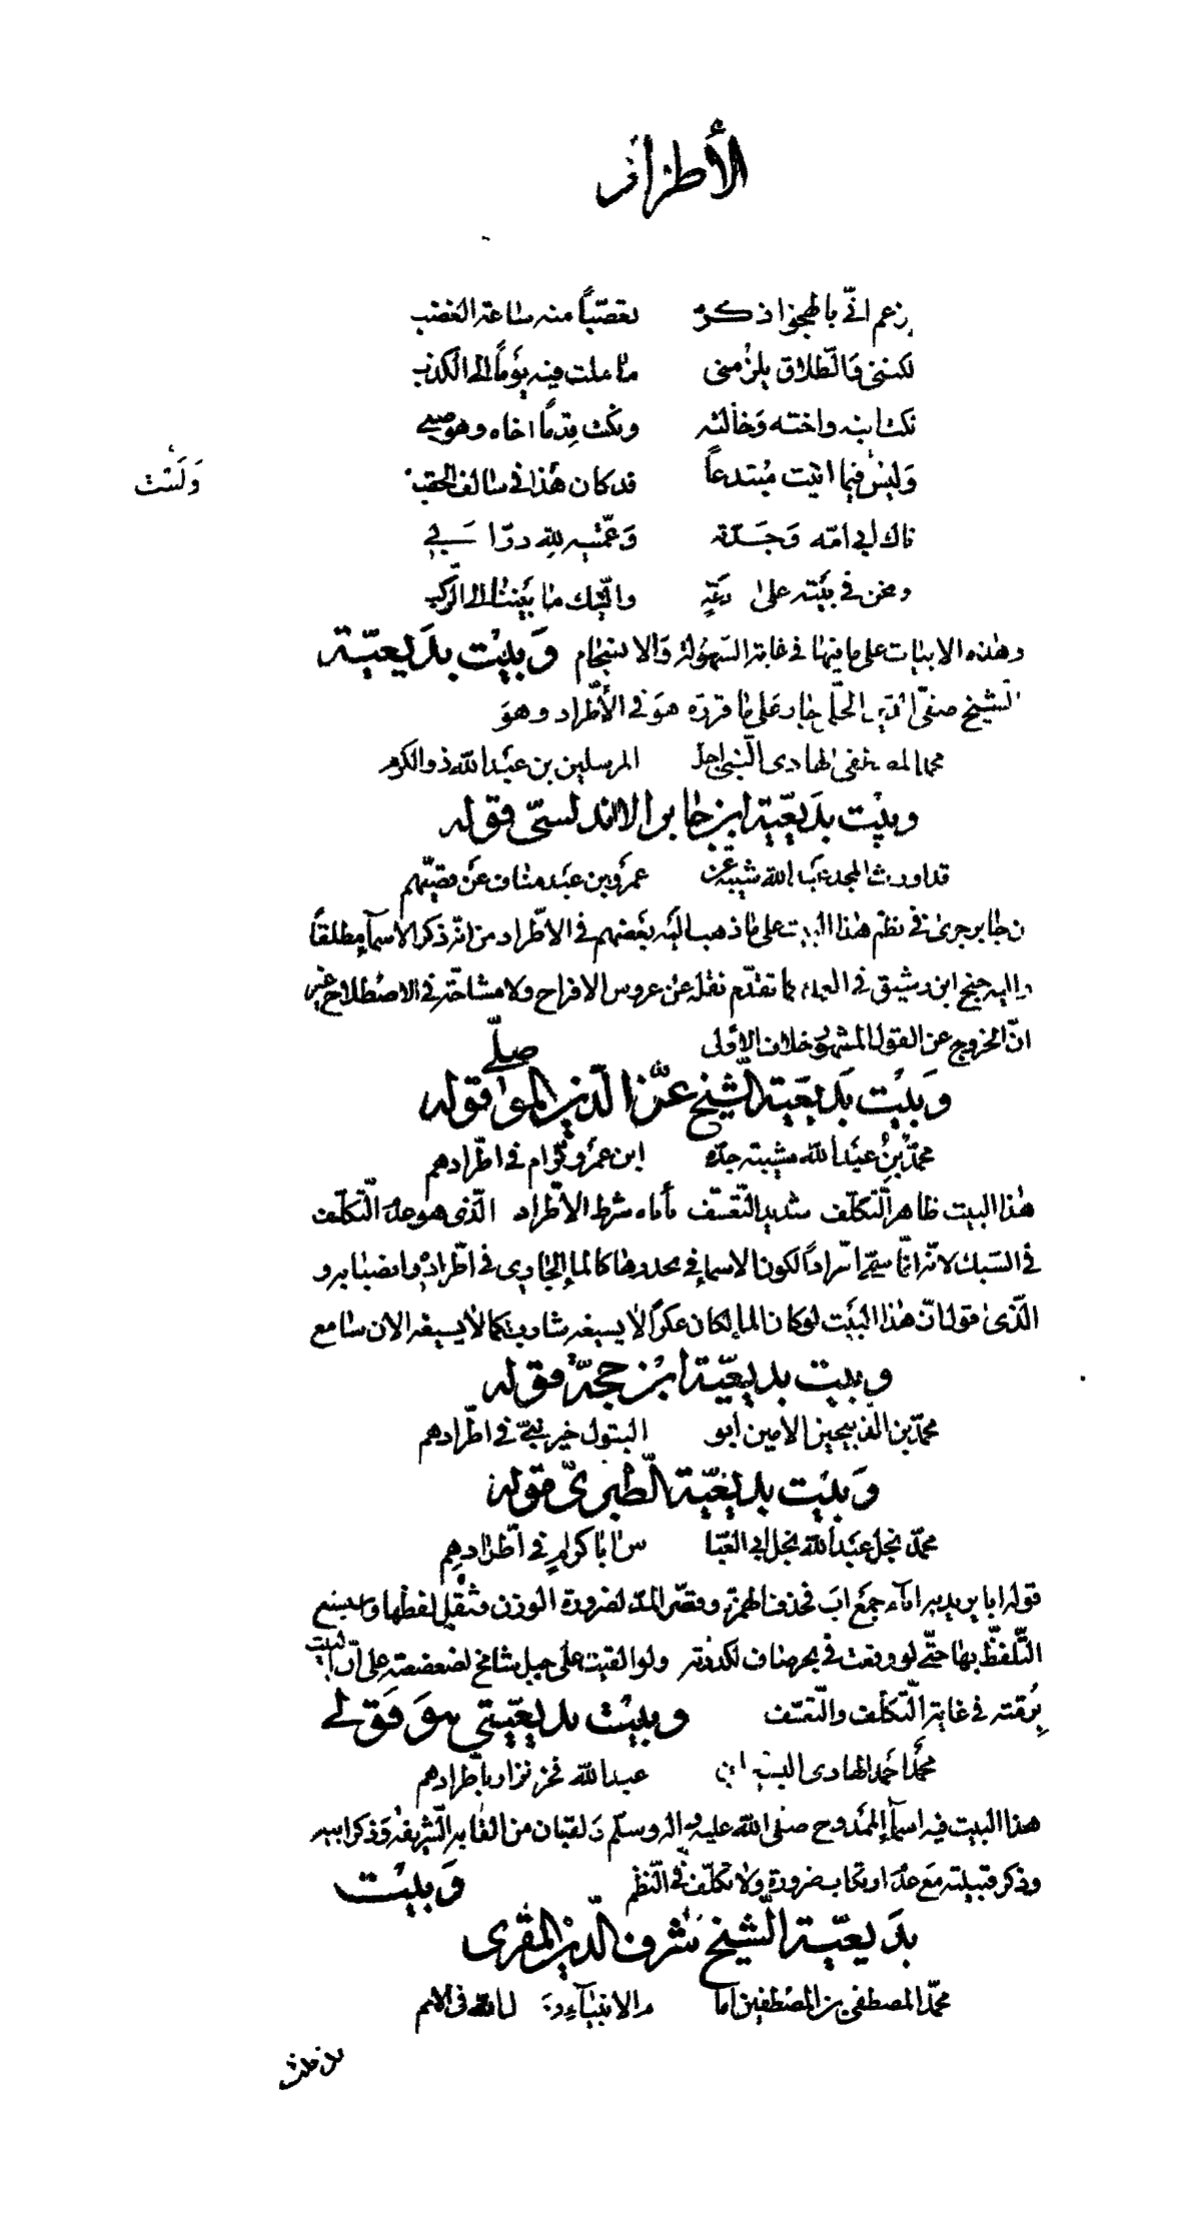 الأطراد
يزعم انّي بالهجو اذكره تعصّبًا منه ساعة الغضب
لكنني والطّلاق يلزمنى ما ملت فيه يومًا الى الكذب
نكت ابنه واخته وخالته ونكت قدمًا اخاه وهو صبي
وَلَسْت
وليس فيما اتيت مبتدعاً قد كان هذا في سالف الحقب
ناك ابي امّه وجدّته وعمّته لله درّ ابي
ونحن في بيته على دعة والنّيك ما بيننا الى الرّكب
وهذه الابيات على ما فيها في غاية السّهولة والانسجام وَبيت بديعيّة
الشيخ صفيّ الدّين الحلّي جار على ما قرره هو في الأطّراد وهو
محمد المصطفى الهادى النّبي اجل المرسلين بن عبد الله ذو الكرم
وبيت بديعيّة ابن جابر الاندلسيّ قوله
قد اورث المجد عبد الله شيبة عن عمرو بن عبد مناف عن قصيّهم
بن جابر جرى في نظم هذا البيت على ما ذهب اليه بعضهم في الاطّراد من انّه ذكر الاسمآء مطلقاً
واليه جنح ابن رشيق في العمدة كما تقدّم نقله عن عروس الافراح ولا مشاحّة في الاصطلاح غير
انّ الخروج عن القول المشهور خلاف الأولى
وبيت بديعيّة الشّيخ عزّ الدّين الموصلّى قوله
محمّد بن عبد الله شيبة جدّه ابن عمرو كرام في اطّرادهم
هذا البيت ظاهر التّكلّف شديد التّعسّف يأباه شرط الاطّراد الّذى هو عدم التّكلّف
في السّبك لانّه انّما سمّي اطّرادًا لكون الاسماء في تحدرها كالماء الجاري في اطّراده وانصبابه و
الّذى اقول انّ هذا البيت لو كان الماء لكان عكرًا لا يسيغه شارب كما لا يسيغه الان سامع
وبيت بديعيّة ابن حجّة قوله
محمّد بن الذبيحين الامين ابو البتول خير نبيّ في اطّرادهم
وبيت بديعيّة الطّبريّ قوله
محمّد نجل عبد الله نجل ابي العبا س ابا كرام في اطّرادهم
قوله ابا يريد به اباء جمع اب فحذف الهمزة وقصّر المدّ لضرورة الوزن وثقل لفظها وبشيع
التّلفّظ بها حتّى لو وقعت في بحر صاف لكدّرته ولو القيت على جبل شامخ لضعضعته على انّ البيت
برمّته في غاية التّكلّف والتّعسّف وبيت بديعيّتي هو قولي
محمّد احمد الهادى البشير ابن عبد الله فخر نزار باطّرادهم
هذا البيت فيه اسمآء الممدوح صلى الله عليه واله وسلّم ولقبان من القابه الشّريفة وذكر ابيه
وذكر قبيلته مع عدم ارتكاب ضرورة ولا تكلّف في النّظم وبيت
بديعيّة الشّيخ شرف الدّين المقرى
محمّد المصطفى بن المصطفين اما م الانبيآء رسول الله في الامم